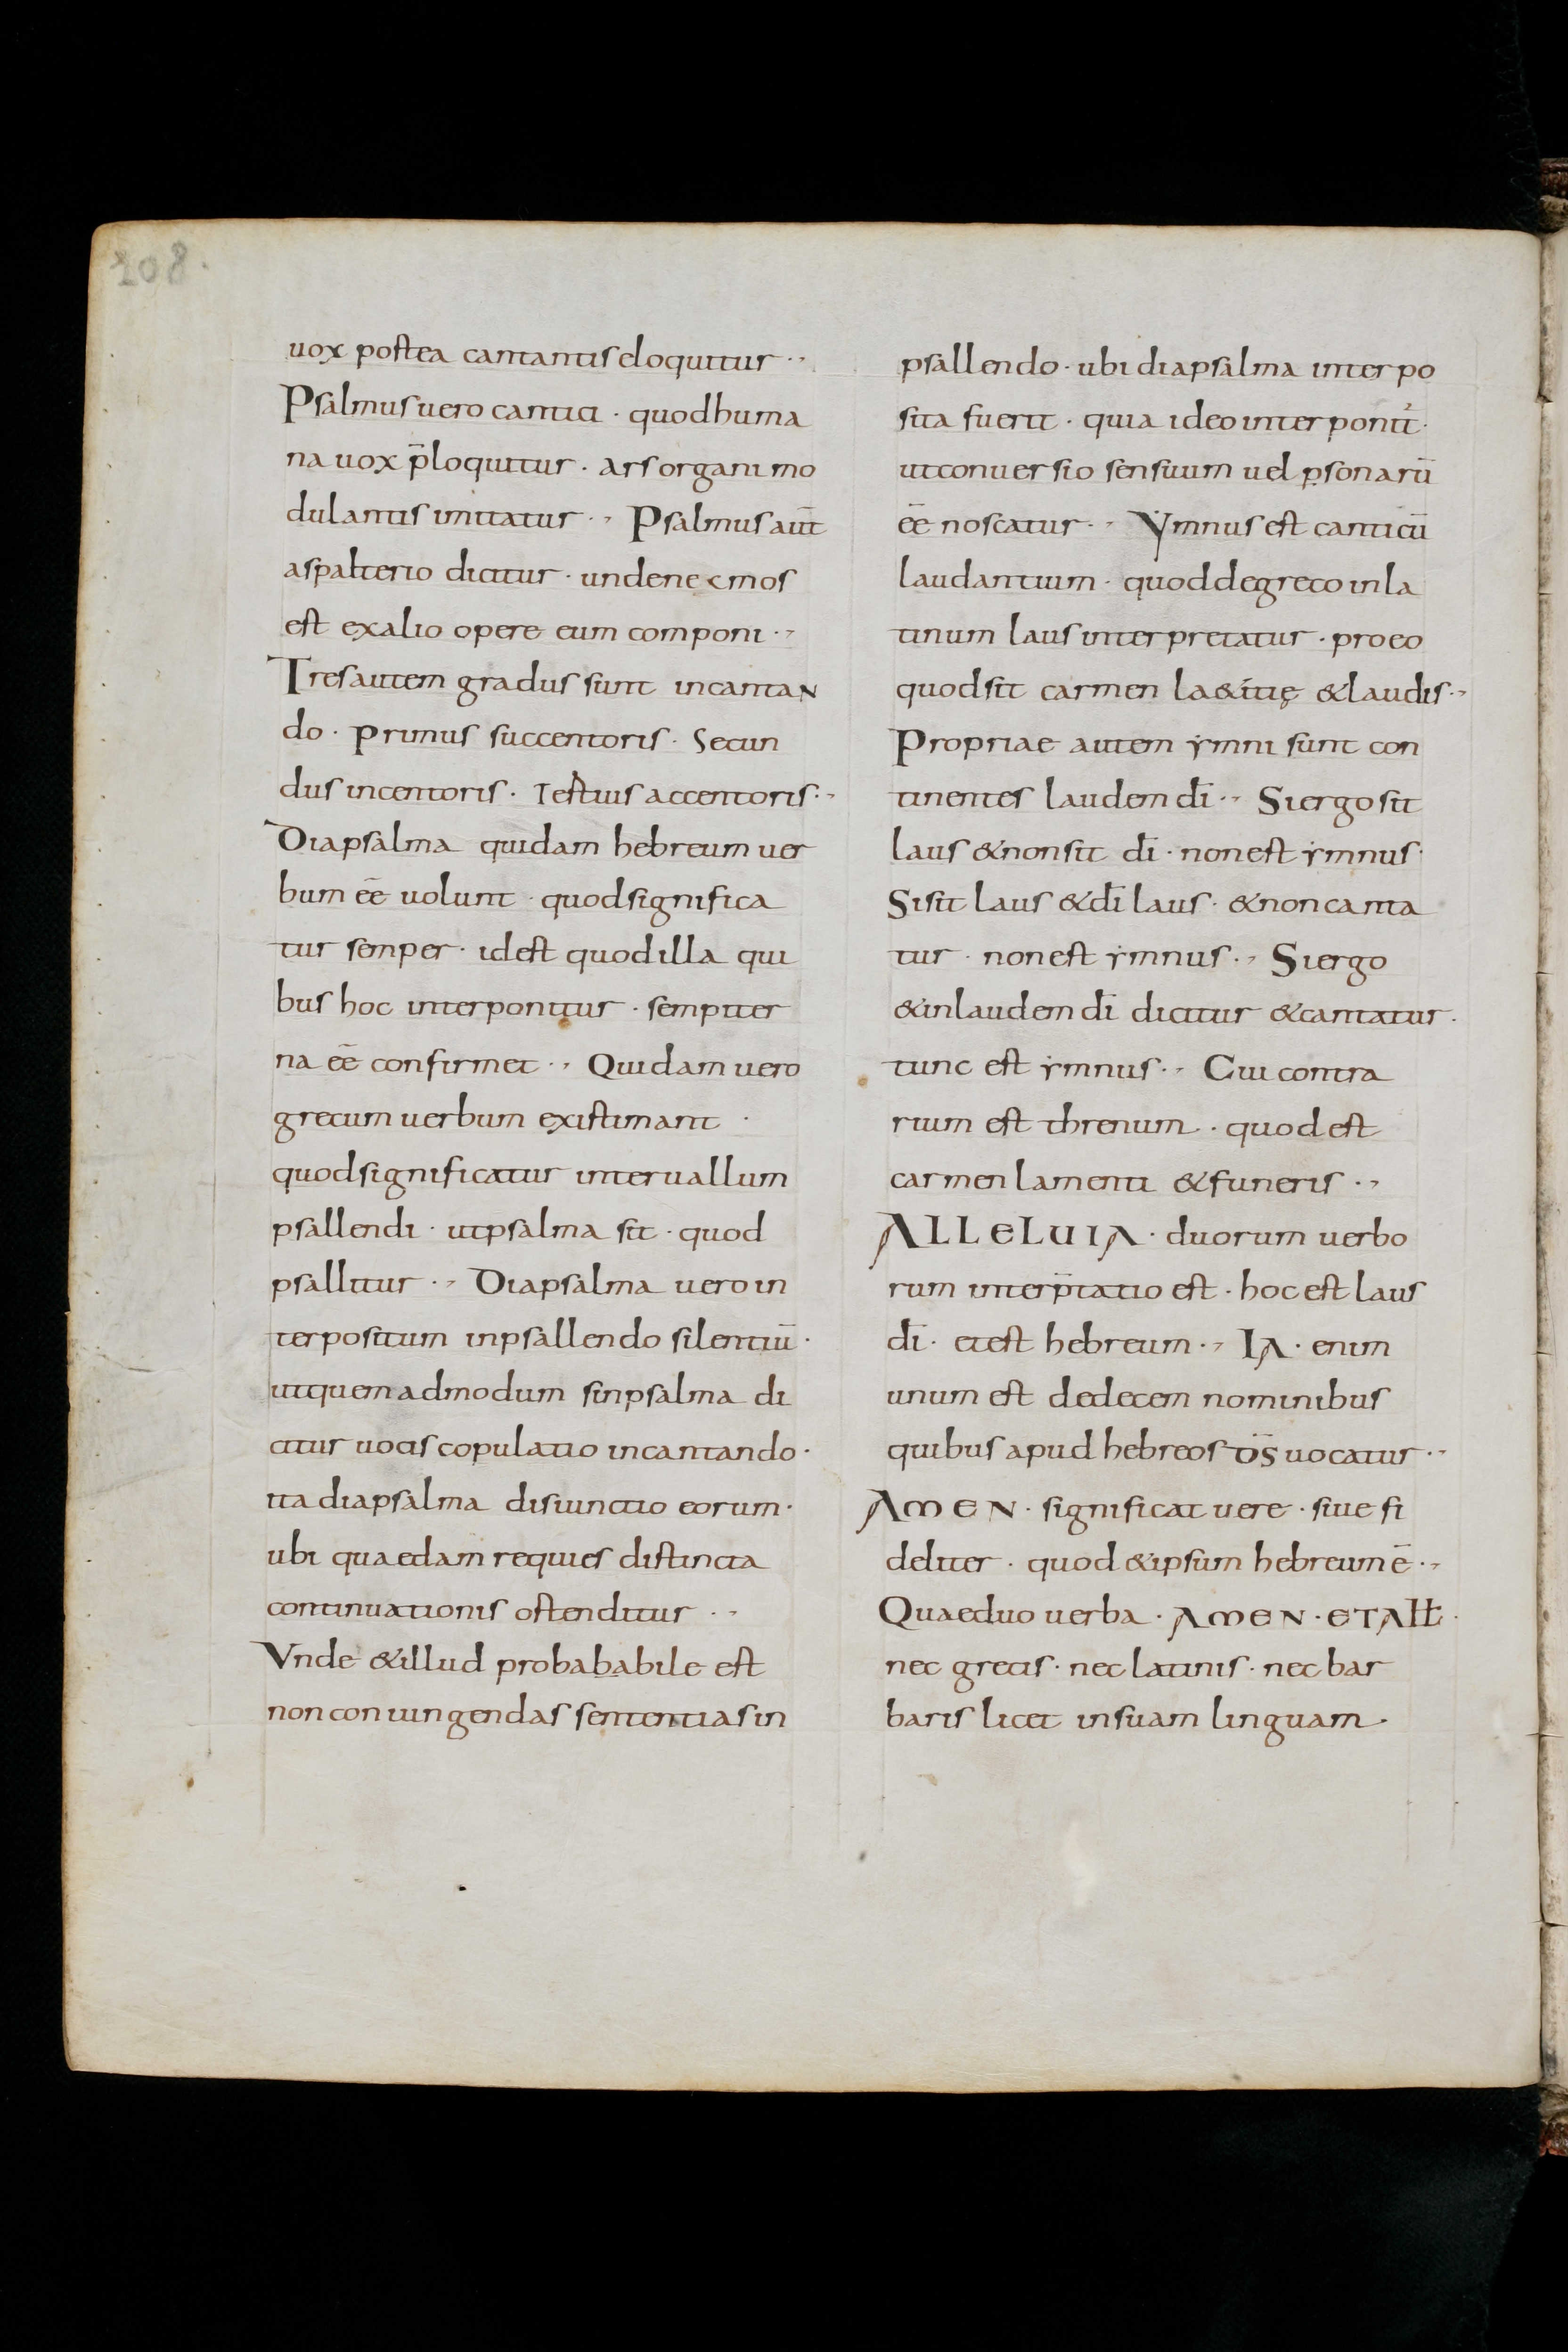 208.
uox postea cantantis eloquitur ·,
Psalmus uero cantici · quod huma
na uox p̄loquitur · ars organi mo
dulantis imitatur ·, Psalmus aūt
a spalterio dicitur · unde nec mos
est ex alio opere eum componi ·,
Tres autem gradus sunt in cantan
do · Primus succentoris · Secun
dus incentoris · Tertius accentoris ·,
Diapsalma quidam hebreum uer
bum eē uolunt · quod significa
tur semper · id est quod illa qui
bus hoc interponitur · sempiter
na eē confirmet ·, Quidam uero
grecum uerbum existimant ·
quod significatur interuallum
psallendi · ut psalma sit · quod
psallitur ·, Diapsalma uero in
terpositum in psallendo silentiū ·
ut quemadmodum sinpsalma di
citur uocis copulatio in cantando ·
ita diapsalma disiunctio eorum ·
ubi quaedam requies distincta
continuationis ostenditur ·,
Vnde & illud probababile est
non coniungendas sententias in
psallendo · ubi diapsalma interpo
sita fuerit · quia ideo interponit̓ ·
ut conuersio sensuum uel ꝑsonarū
eē noscatur ·, Ymnus est canticū
laudantium · quod de greco in la
tinum laus interpretatur · pro eo
quod sit carmen la&itię & laudis ·,
Propriae autem ymni sunt con
tinentes laudem dī ·, Si ergo sit
laus & non sit dī · non est ymnus ·
Si sit laus & dī laus · & non canta
tur · non est ymnus ·, Si ergo
& in laudem dī dicitur & cantatur ·
tunc est ymnus ·, Cui contra
rium est threnum · quod est
carmen lamenti & funeris ·,
ALLELUIA · duorum uerbo
rum interp̄tatio est · hoc est laus
dī · et est hebreum ·, IA · enim
unum est de decem nominibus
quibus apud hebreos dS̄ uocatur ·,
AMEN · significat uere · siue fi
deliter · quod & ipsum hebreum ē ·,
Quae duo uerba · AMEN · ET ALƚ ·
nec grecis · nec latinis · nec bar
baris licet in suam linguam ·